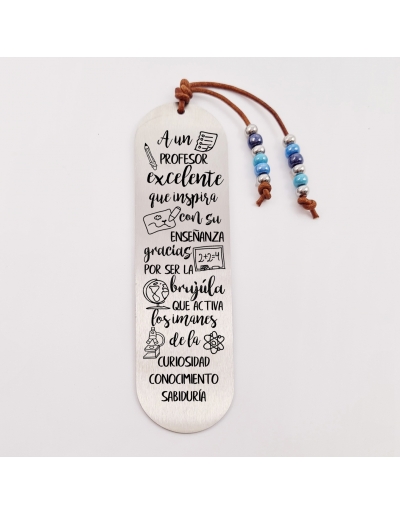 A un
PROFESOR
excelente
que inspira
con su
ENSEÑANZA
gracias
2+2=4
POR SER LA
brújula
QUE ACTIVA
los imanes
de la
CURIOSIDAD
CONOCIMIENTO
SABIDURÍA